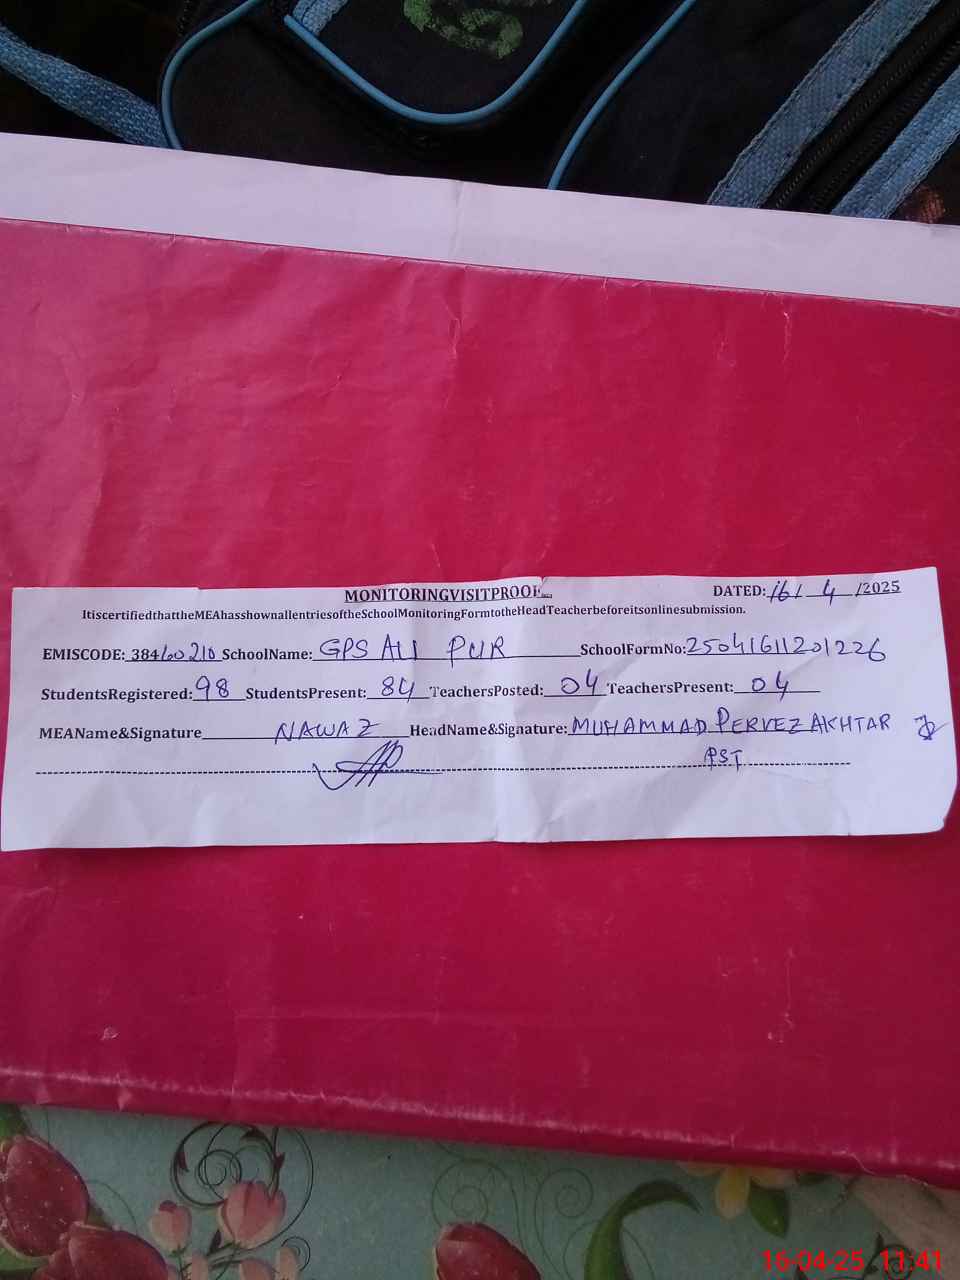 MONITORINGVISITPROOF
DATED: 16/ 4 /2025
ItiscertifiedthattheMEAhasshownallentriesoftheSchoolMonitoringFormtotheHeadTeacherbeforeitsonlinesubmission.
EMISCODE: 38460210 SchoolName: GPS ALI PUR SchoolFormNo: 25041611201226
StudentsRegistered: 98 StudentsPresent: 84 TeachersPosted: 04 TeachersPresent: 04
MEAName&Signature NAWAZ HeadName&Signature: MUHAMMAD PERVEZ AKHTAR
PST
16-04-25 11:41